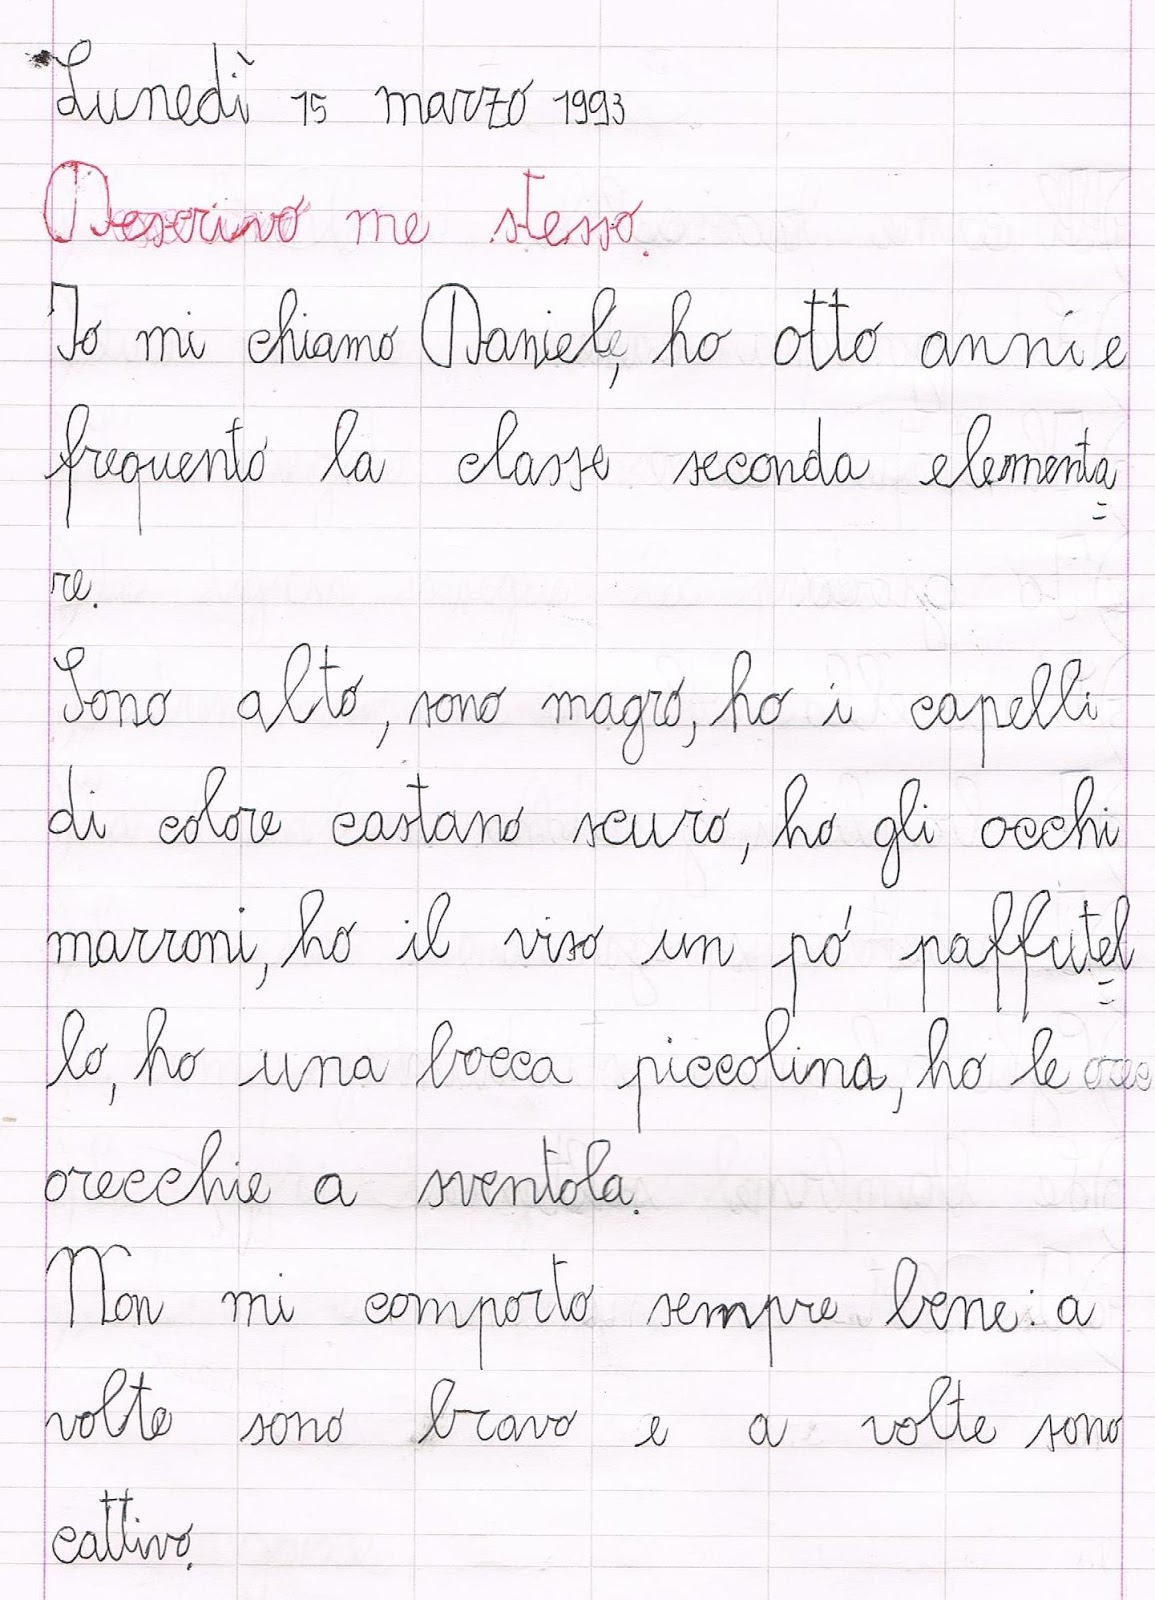 Lunedì 15 marzo 1993
Descrivo me stesso.
Io mi chiamo Daniele, ho otto anni e
frequento la classe seconda elementa=
re.
Sono alto, sono magro, ho i capelli
di colore castano scuro, ho gli occhi
marroni, ho il viso un pó paffutel=
lo, ho una bocca piccolina, ho le orec
orecchie a sventola.
Non mi comporto sempre bene: a
volte sono bravo e a volte sono
cattivo.